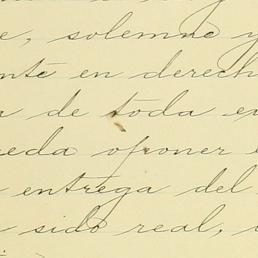 e, solemne y
nte en derech
a de toda ex
eda oponer e
entrega del
sido real,